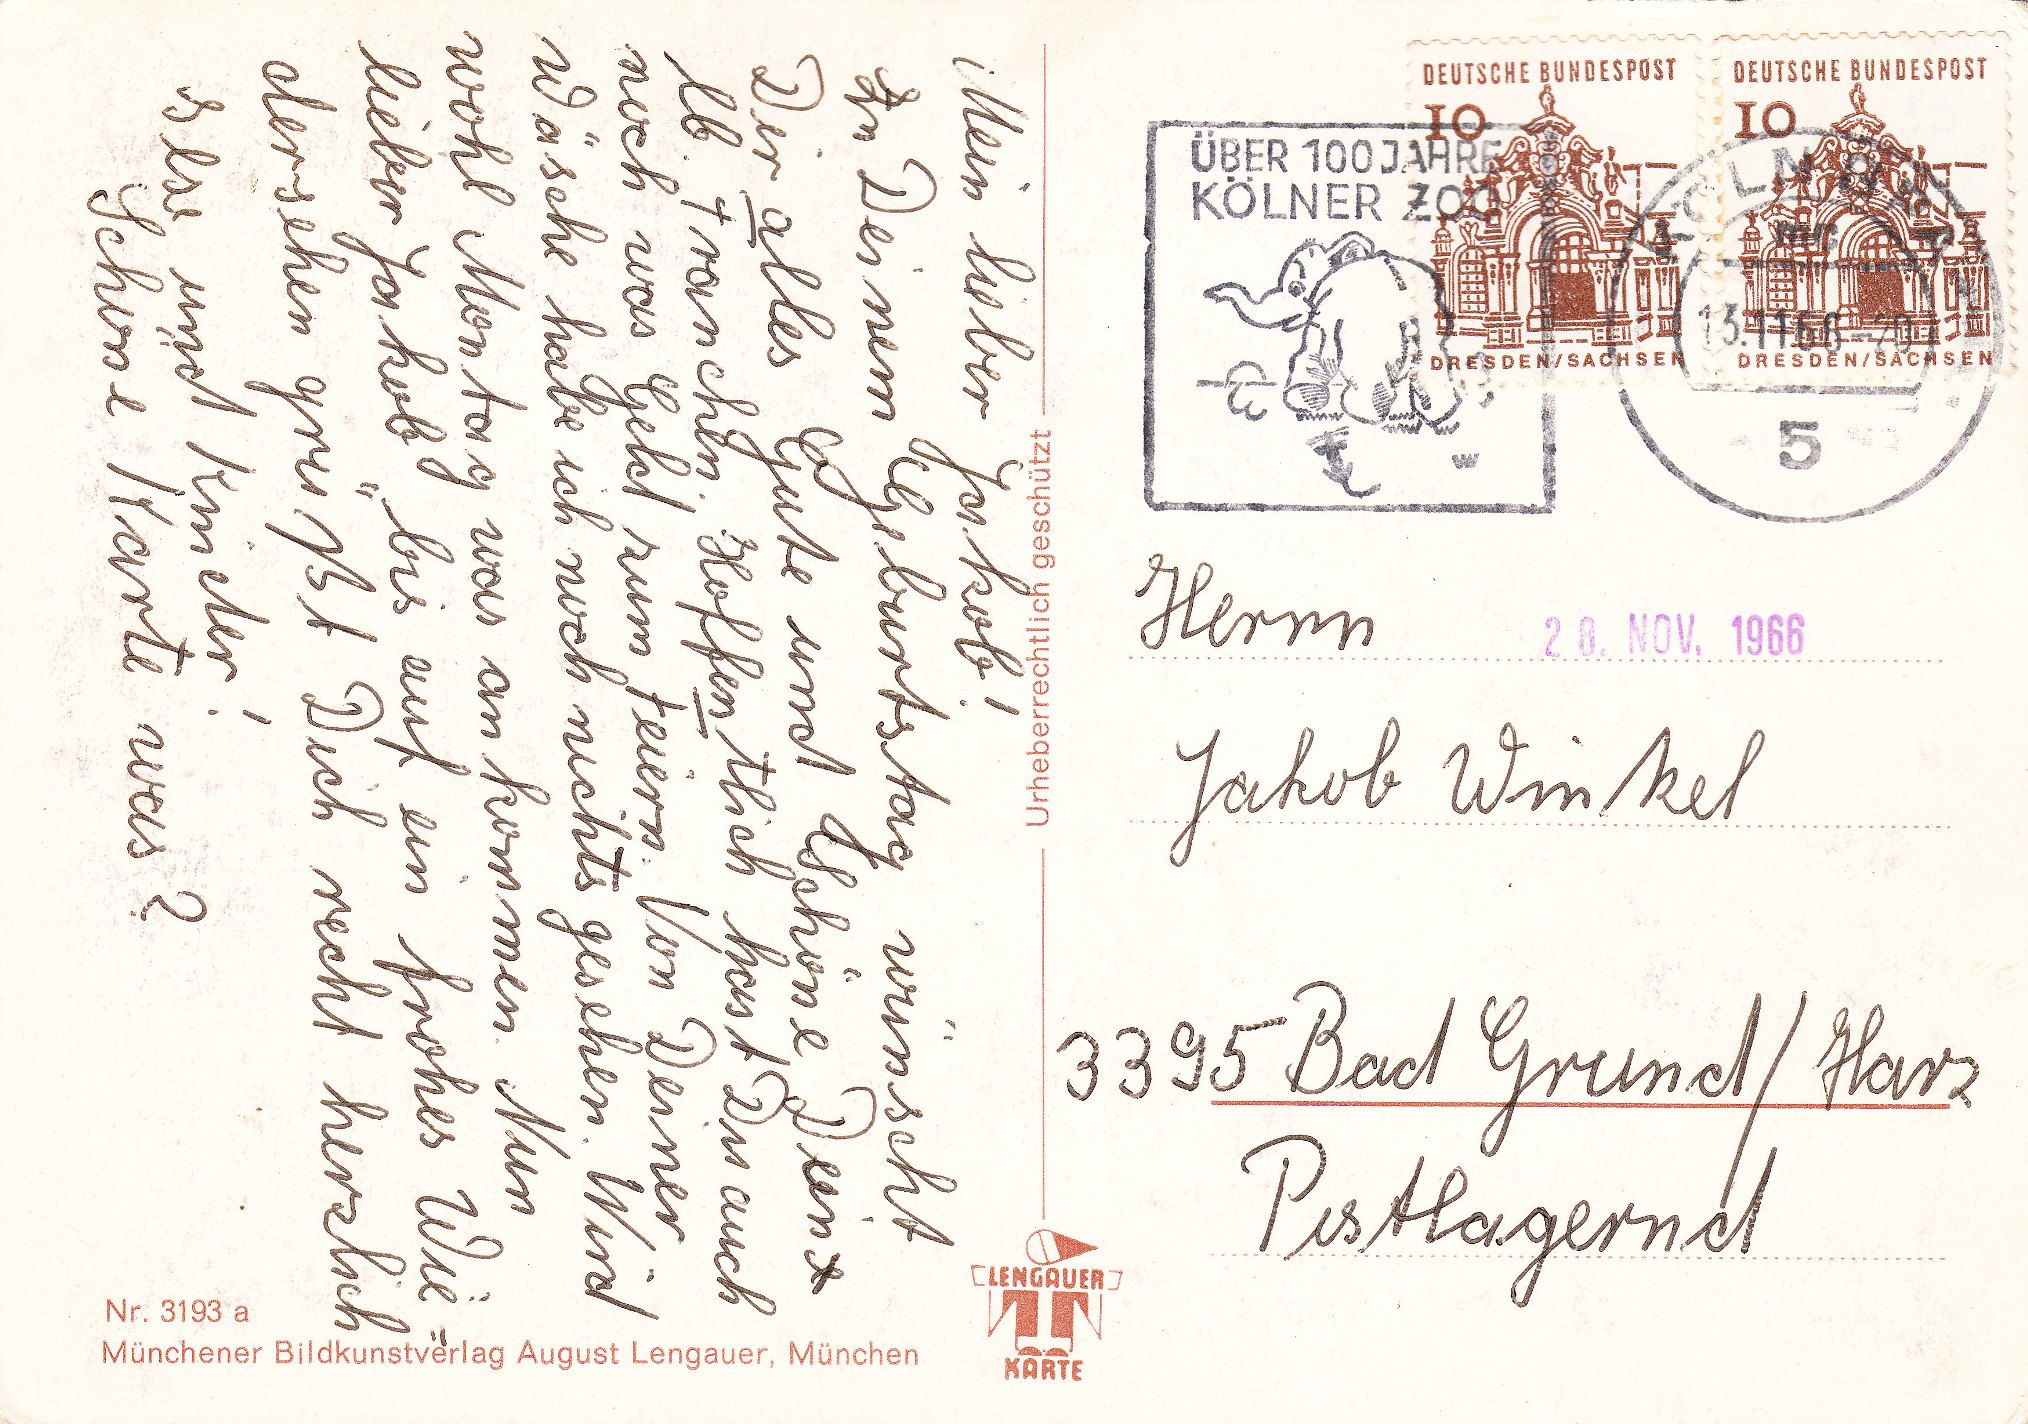 Mein lieber Jakob!
Zu Deinem Geburtstag wünscht
Dir alles Gute und Schöne Dein
lb. Franchen. Hoffentlich hast Du auch
noch was Geld zum feiern. Von Deiner
Wäsche habe ich noch nichts gesehen. Wird
wohl Montag was ankommen. Nun
lieber Jakob "bis auf ein frohes Wie-
dersehen grüßt Dich recht herzlich
Else und Kinder!
Schöne Karte was?
Urheberrechtlich geschützt
DEUTSCHE BUNDESPOST
10
DRESDEN/SACHSEN
DEUTSCHE BUNDESPOST
10
DRESDEN/SACHSEN
ÜBER 100 JAHRE
KÖLNER ZOO
KÖLN
13.11.66-20
5
Herrn
20. NOV. 1966
Jakob Winkel
3395 Bad Grund/Harz
Postlagernd
LENGAUER
KARTE
Nr. 3193 a
Münchener Bildkunstverlag August Lengauer, München